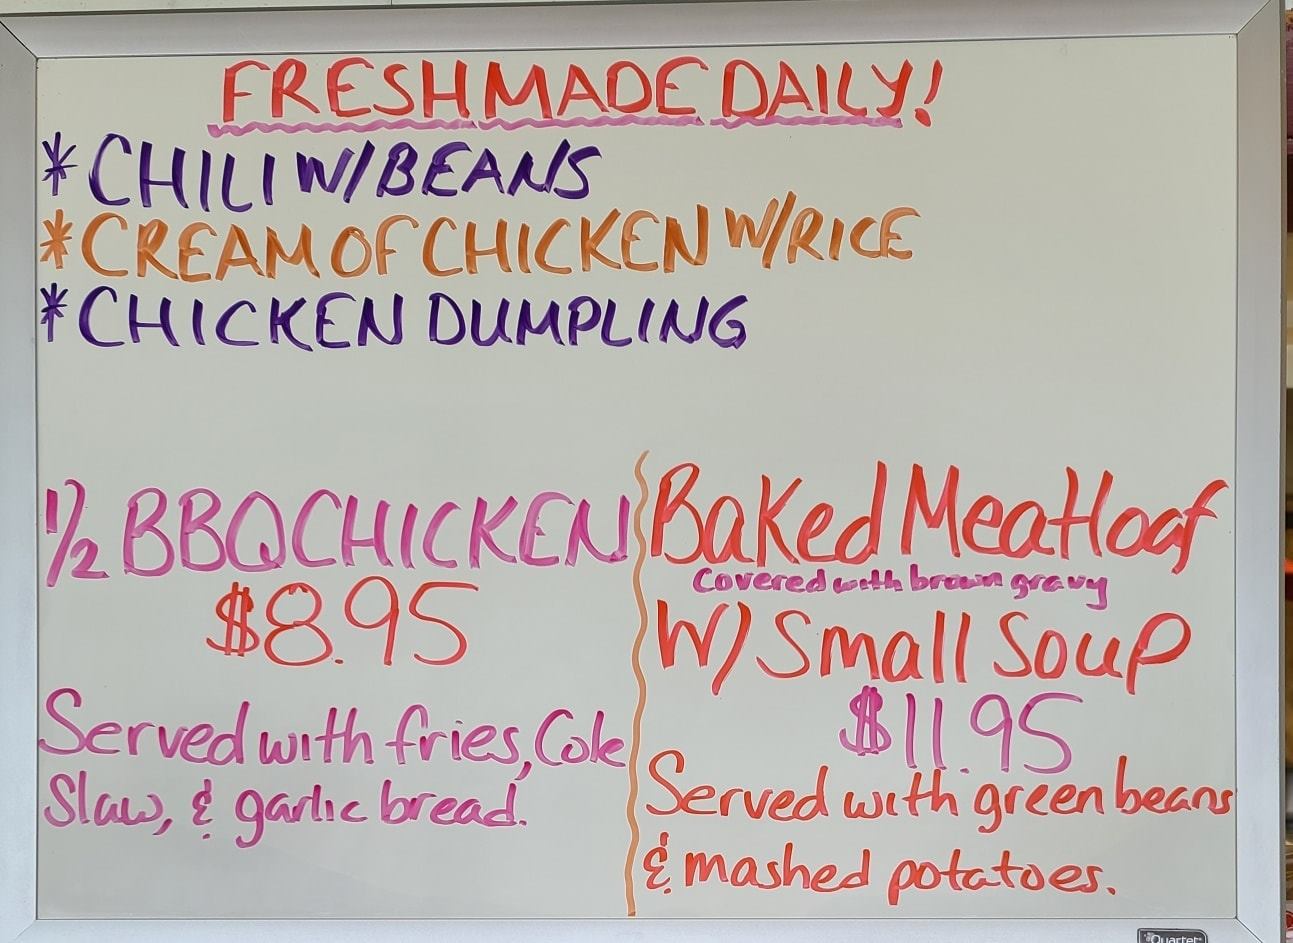 FRESH MADE DAILY!
* CHILI W/BEANS
* CREAM OF CHICKEN W/RICE
* CHICKEN DUMPLING
1/2 BBQ CHICKEN
$8.95
Served with fries, Cole
Slaw, & garlic bread.
Baked Meatloaf
Covered with brown gravy
W/ Small Soup
$11.95
Served with green beans
& mashed potatoes.
Quartet